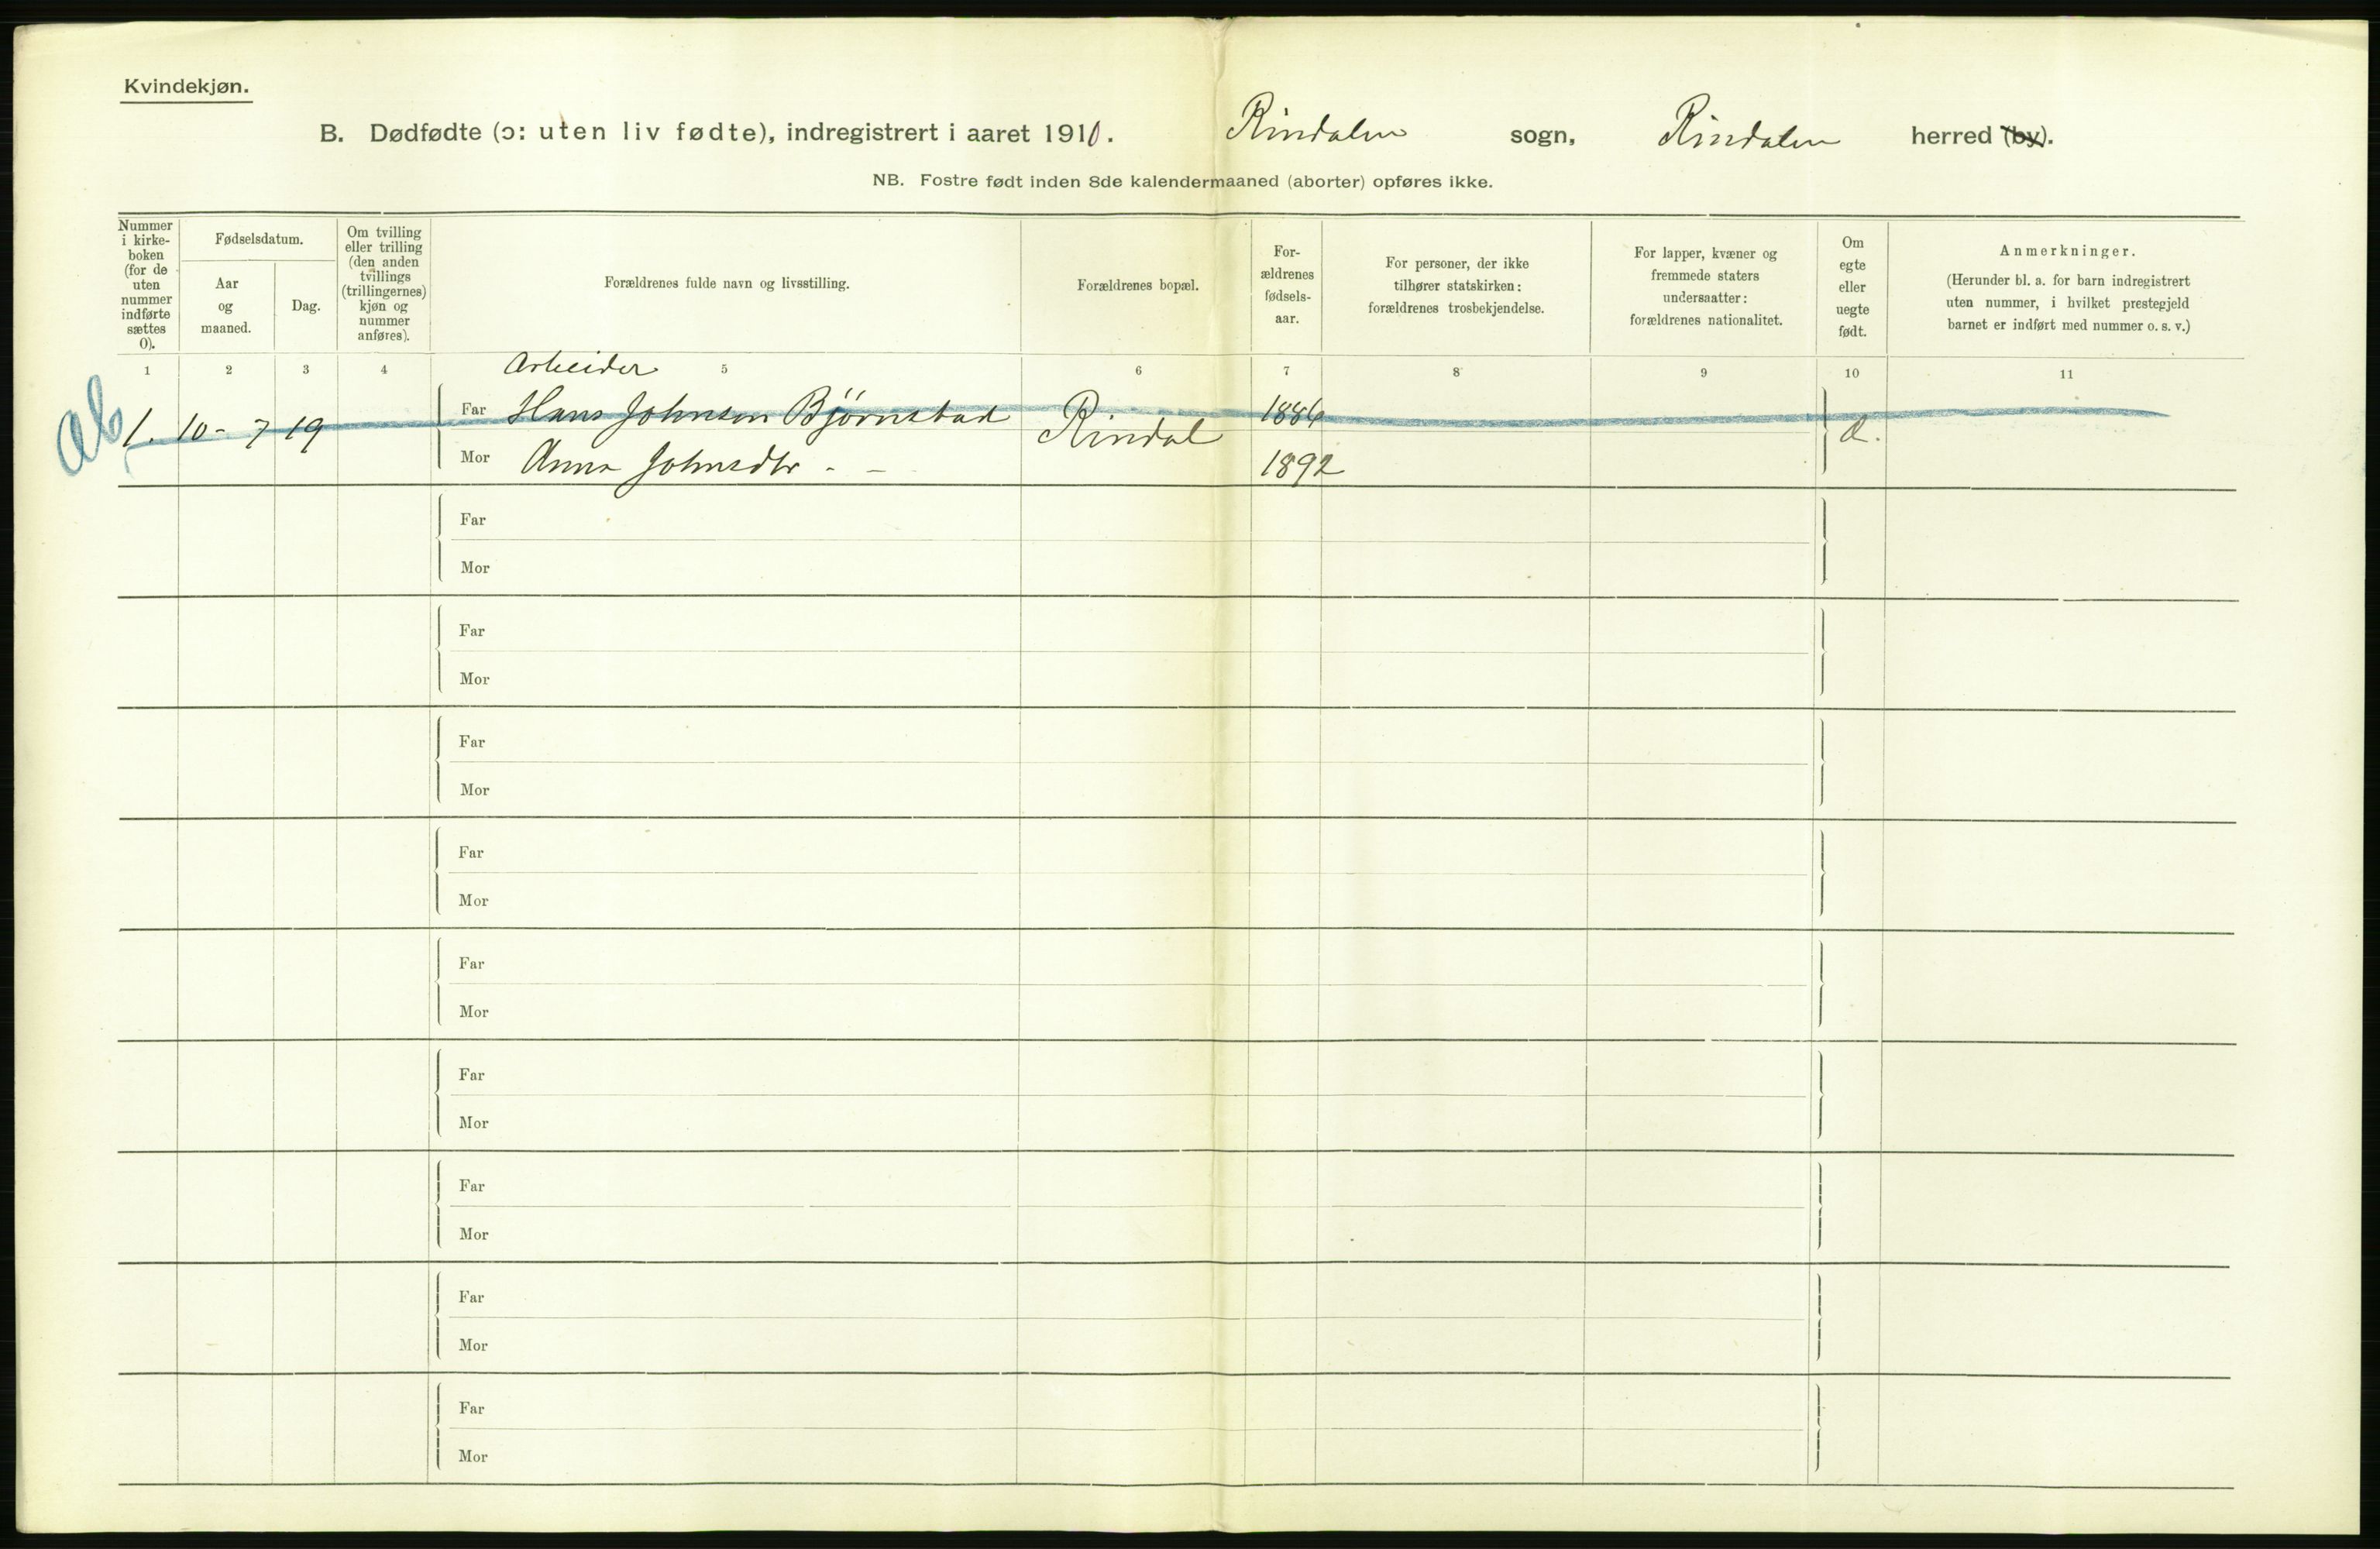 Kvindekjøn.
B. Dødfødte (ɔ: uten liv fødte), indregistrert i aaret 1910. Rindalen sogn, Rindalen herred (by).
NB. Fostre født inden 8de kalendermaaned (aborter) opføres ikke.
Nummer
i kirke-
boken
(for de
uten
nummer
indførte
sættes
0).
Fødselsdatum.
Aar
og
maaned.
Dag.
Om tvilling
eller trilling
(den anden
tvillings
(trillingernes)
kjøn og
nummer
anføres).
Forældrenes fulde navn og livsstilling.
Forældrenes bopæl.
For-
ældrenes
fødsels-
aar.
For personer, der ikke
tilhører statskirken:
forældrenes trosbekjendelse.
For lapper, kvæner og
fremmede staters
undersaatter:
forældrenes nationalitet.
Om
egte
eller
uegte
født.
Anmerkninger.
(Herunder bl. a. for barn indregistrert
uten nummer, i hvilket prestegjeld
barnet er indført med nummer o. s. v.)
1 2 3 4 5 6 7 8 9 10 11
Arbeider
Ab
1. 10- 7 19 Far Hans Johnsen Bjørnstad Rindal 1886
Mor Anna Johnsdtr - - 1892
Far
Mor
Far
Mor
Far
Mor
Far
Mor
Far
Mor
Far
Mor
Far
Mor
Far
Mor
Far
Mor